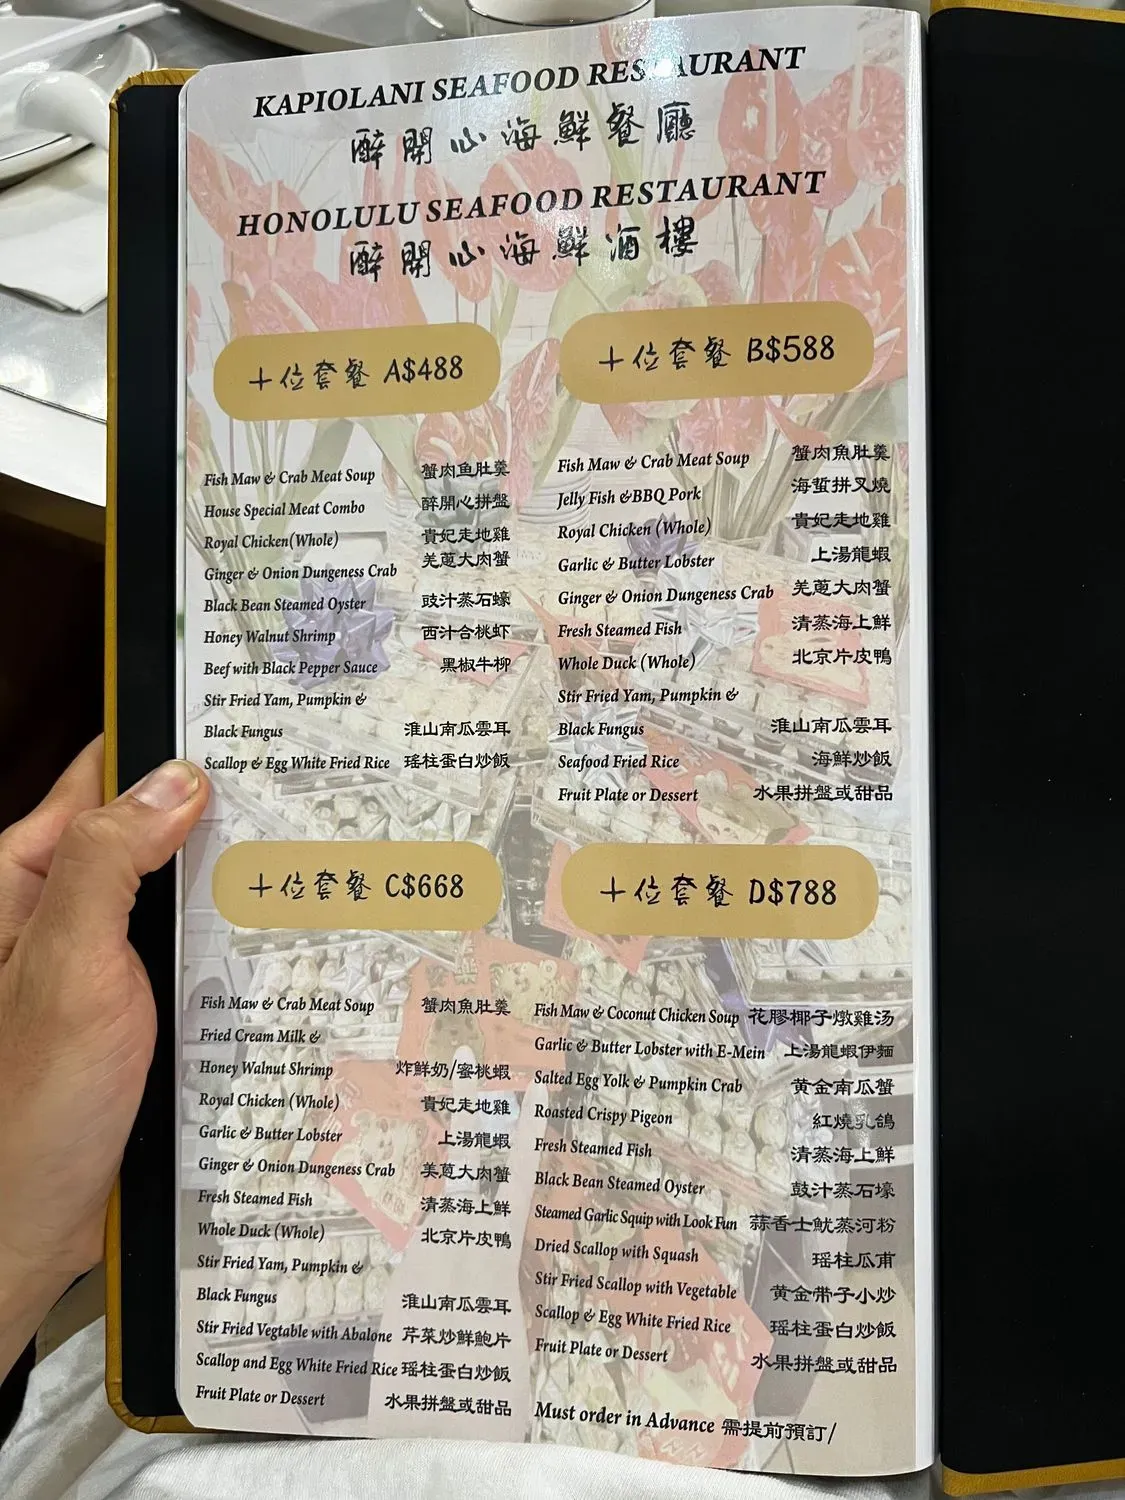 KAPIOLANI SEAFOOD RESTAURANT
醉開心海鮮餐廳
HONOLULU SEAFOOD RESTAURANT
醉開心海鮮酒樓
十位套餐 A$488
Fish Maw & Crab Meat Soup 蟹肉鱼肚羹
House Special Meat Combo 醉開心拼盤
Royal Chicken(Whole) 貴妃走地雞
Ginger & Onion Dungeness Crab 羌蔥大肉蟹
Black Bean Steamed Oyster 豉汁蒸石蠔
Honey Walnut Shrimp 西汁合桃虾
Beef with Black Pepper Sauce 黑椒牛柳
Stir Fried Yam, Pumpkin &
Black Fungus 淮山南瓜雲耳
Scallop & Egg White Fried Rice 瑶柱蛋白炒飯
十位套餐 B$588
Fish Maw & Crab Meat Soup 蟹肉魚肚羹
Jelly Fish &BBQ Pork 海蜇拼叉燒
Royal Chicken (Whole) 貴妃走地雞
Garlic & Butter Lobster 上湯龍蝦
Ginger & Onion Dungeness Crab 羌蔥大肉蟹
Fresh Steamed Fish 清蒸海上鮮
Whole Duck (Whole) 北京片皮鴨
Stir Fried Yam, Pumpkin &
Black Fungus 淮山南瓜雲耳
Seafood Fried Rice 海鮮炒飯
Fruit Plate or Dessert 水果拼盤或甜品
十位套餐 C$668
Fish Maw & Crab Meat Soup 蟹肉魚肚羹
Fried Cream Milk &
Honey Walnut Shrimp 炸鮮奶/蜜桃蝦
Royal Chicken (Whole) 貴妃走地雞
Garlic & Butter Lobster 上湯龍蝦
Ginger & Onion Dungeness Crab 美蔥大肉蟹
Fresh Steamed Fish 清蒸海上鮮
Whole Duck (Whole) 北京片皮鴨
Stir Fried Yam, Pumpkin &
Black Fungus 淮山南瓜雲耳
Stir Fried Vegtable with Abalone 芹菜炒鮮鮑片
Scallop and Egg White Fried Rice 瑶柱蛋白炒飯
Fruit Plate or Dessert 水果拼盤或甜品
十位套餐 D$788
Fish Maw & Coconut Chicken Soup 花膠椰子燉雞汤
Garlic & Butter Lobster with E-Mein 上湯龍蝦伊麵
Salted Egg Yolk & Pumpkin Crab 黄金南瓜蟹
Roasted Crispy Pigeon 紅燒乳鴿
Fresh Steamed Fish 清蒸海上鮮
Black Bean Steamed Oyster 鼓汁蒸石壕
Steamed Garlic Squip with Look Fun 蒜香士魷蒸河粉
Dried Scallop with Squash 瑶柱瓜甫
Stir Fried Scallop with Vegetable 黄金带子小炒
Scallop & Egg White Fried Rice 瑶柱蛋白炒飯
Fruit Plate or Dessert 水果拼盤或甜品
Must order in Advance 需提前預訂/